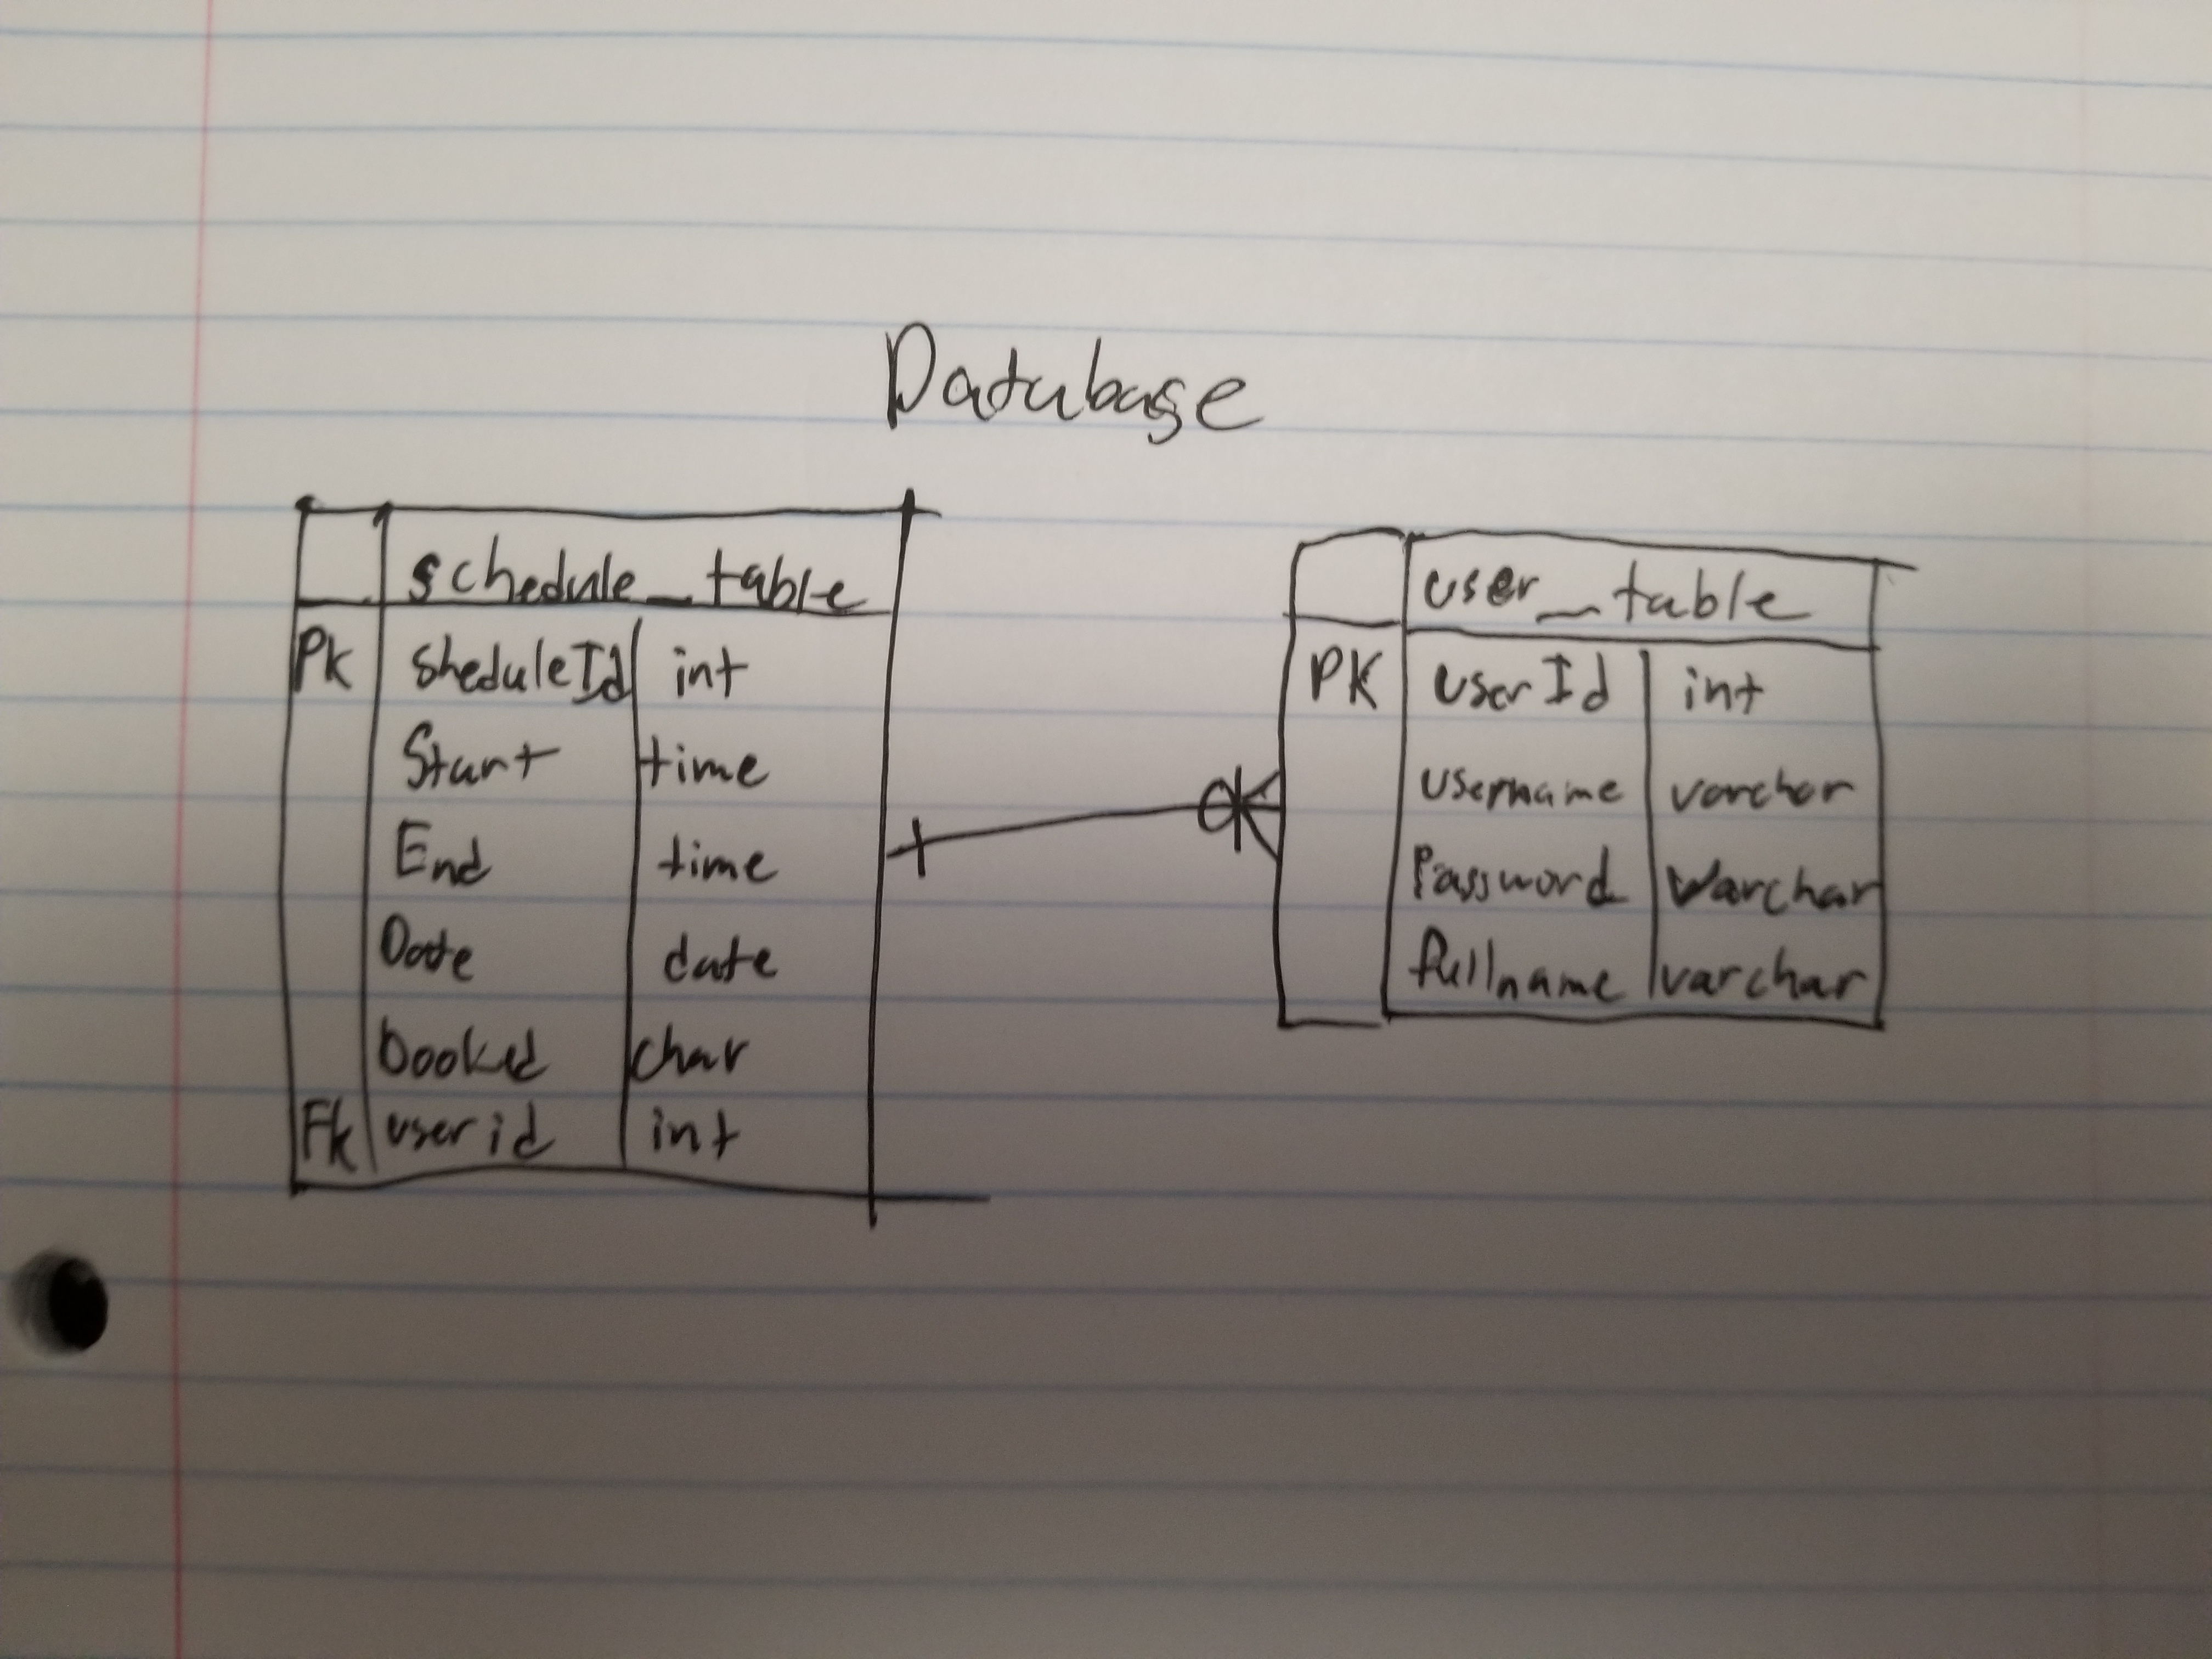 Database
schedule_table
PK sheduleId int
Start time
End time
Date date
booked char
FK userid int
user_table
PK userId int
username varchar
Password varchar
fullname varchar